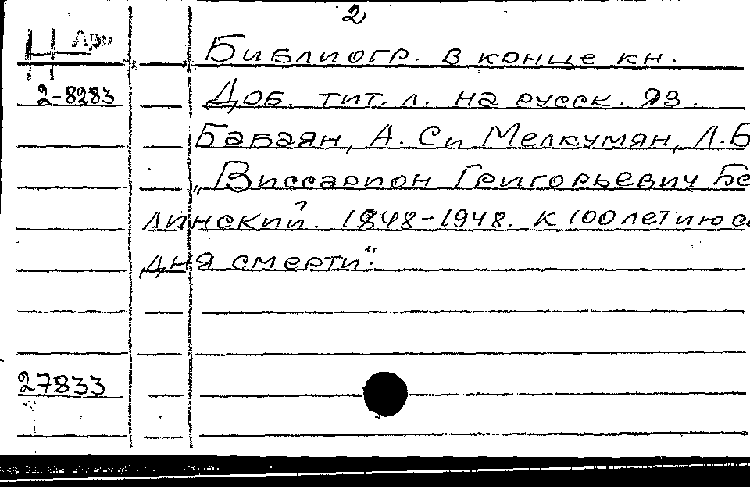 2
Арм
Библиогр. в конце кн.
2-8283
Доб. тит. л. на русск. яз.
Бабаян, А. С и Мелкумян, Л. Б
„Виссарион Григорьевич Бе
линский. 1848-1948. К 100 летию со
дня смерти“.
27833